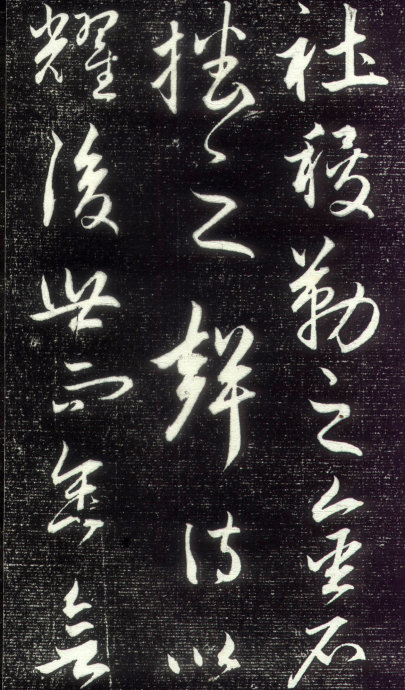 社稷勒之金石
播之聲詩以
耀後世而垂無